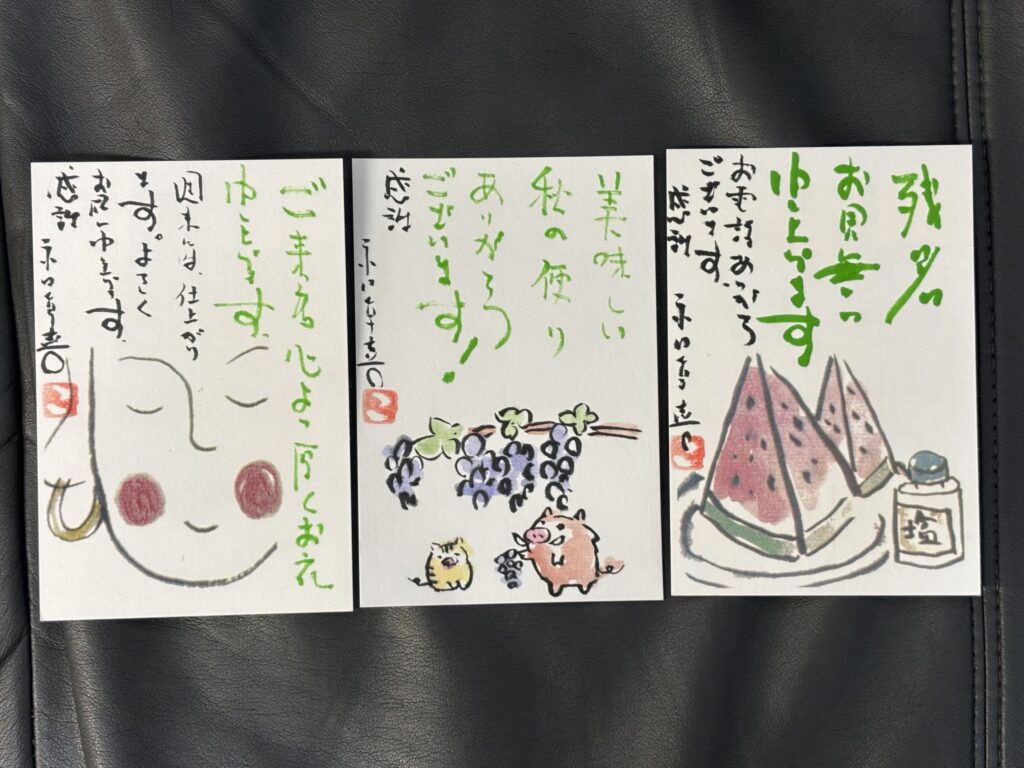 ご来店心より厚くお礼
申し上げます。
週末には、仕上がり
ます。よろしく
お願い申し上げます。
感謝
美味しい
秋の便り
ありがとう
ございます!
感謝
残暑
お見舞い
申し上げます
お電話ありがとう
ございます。
感謝
塩